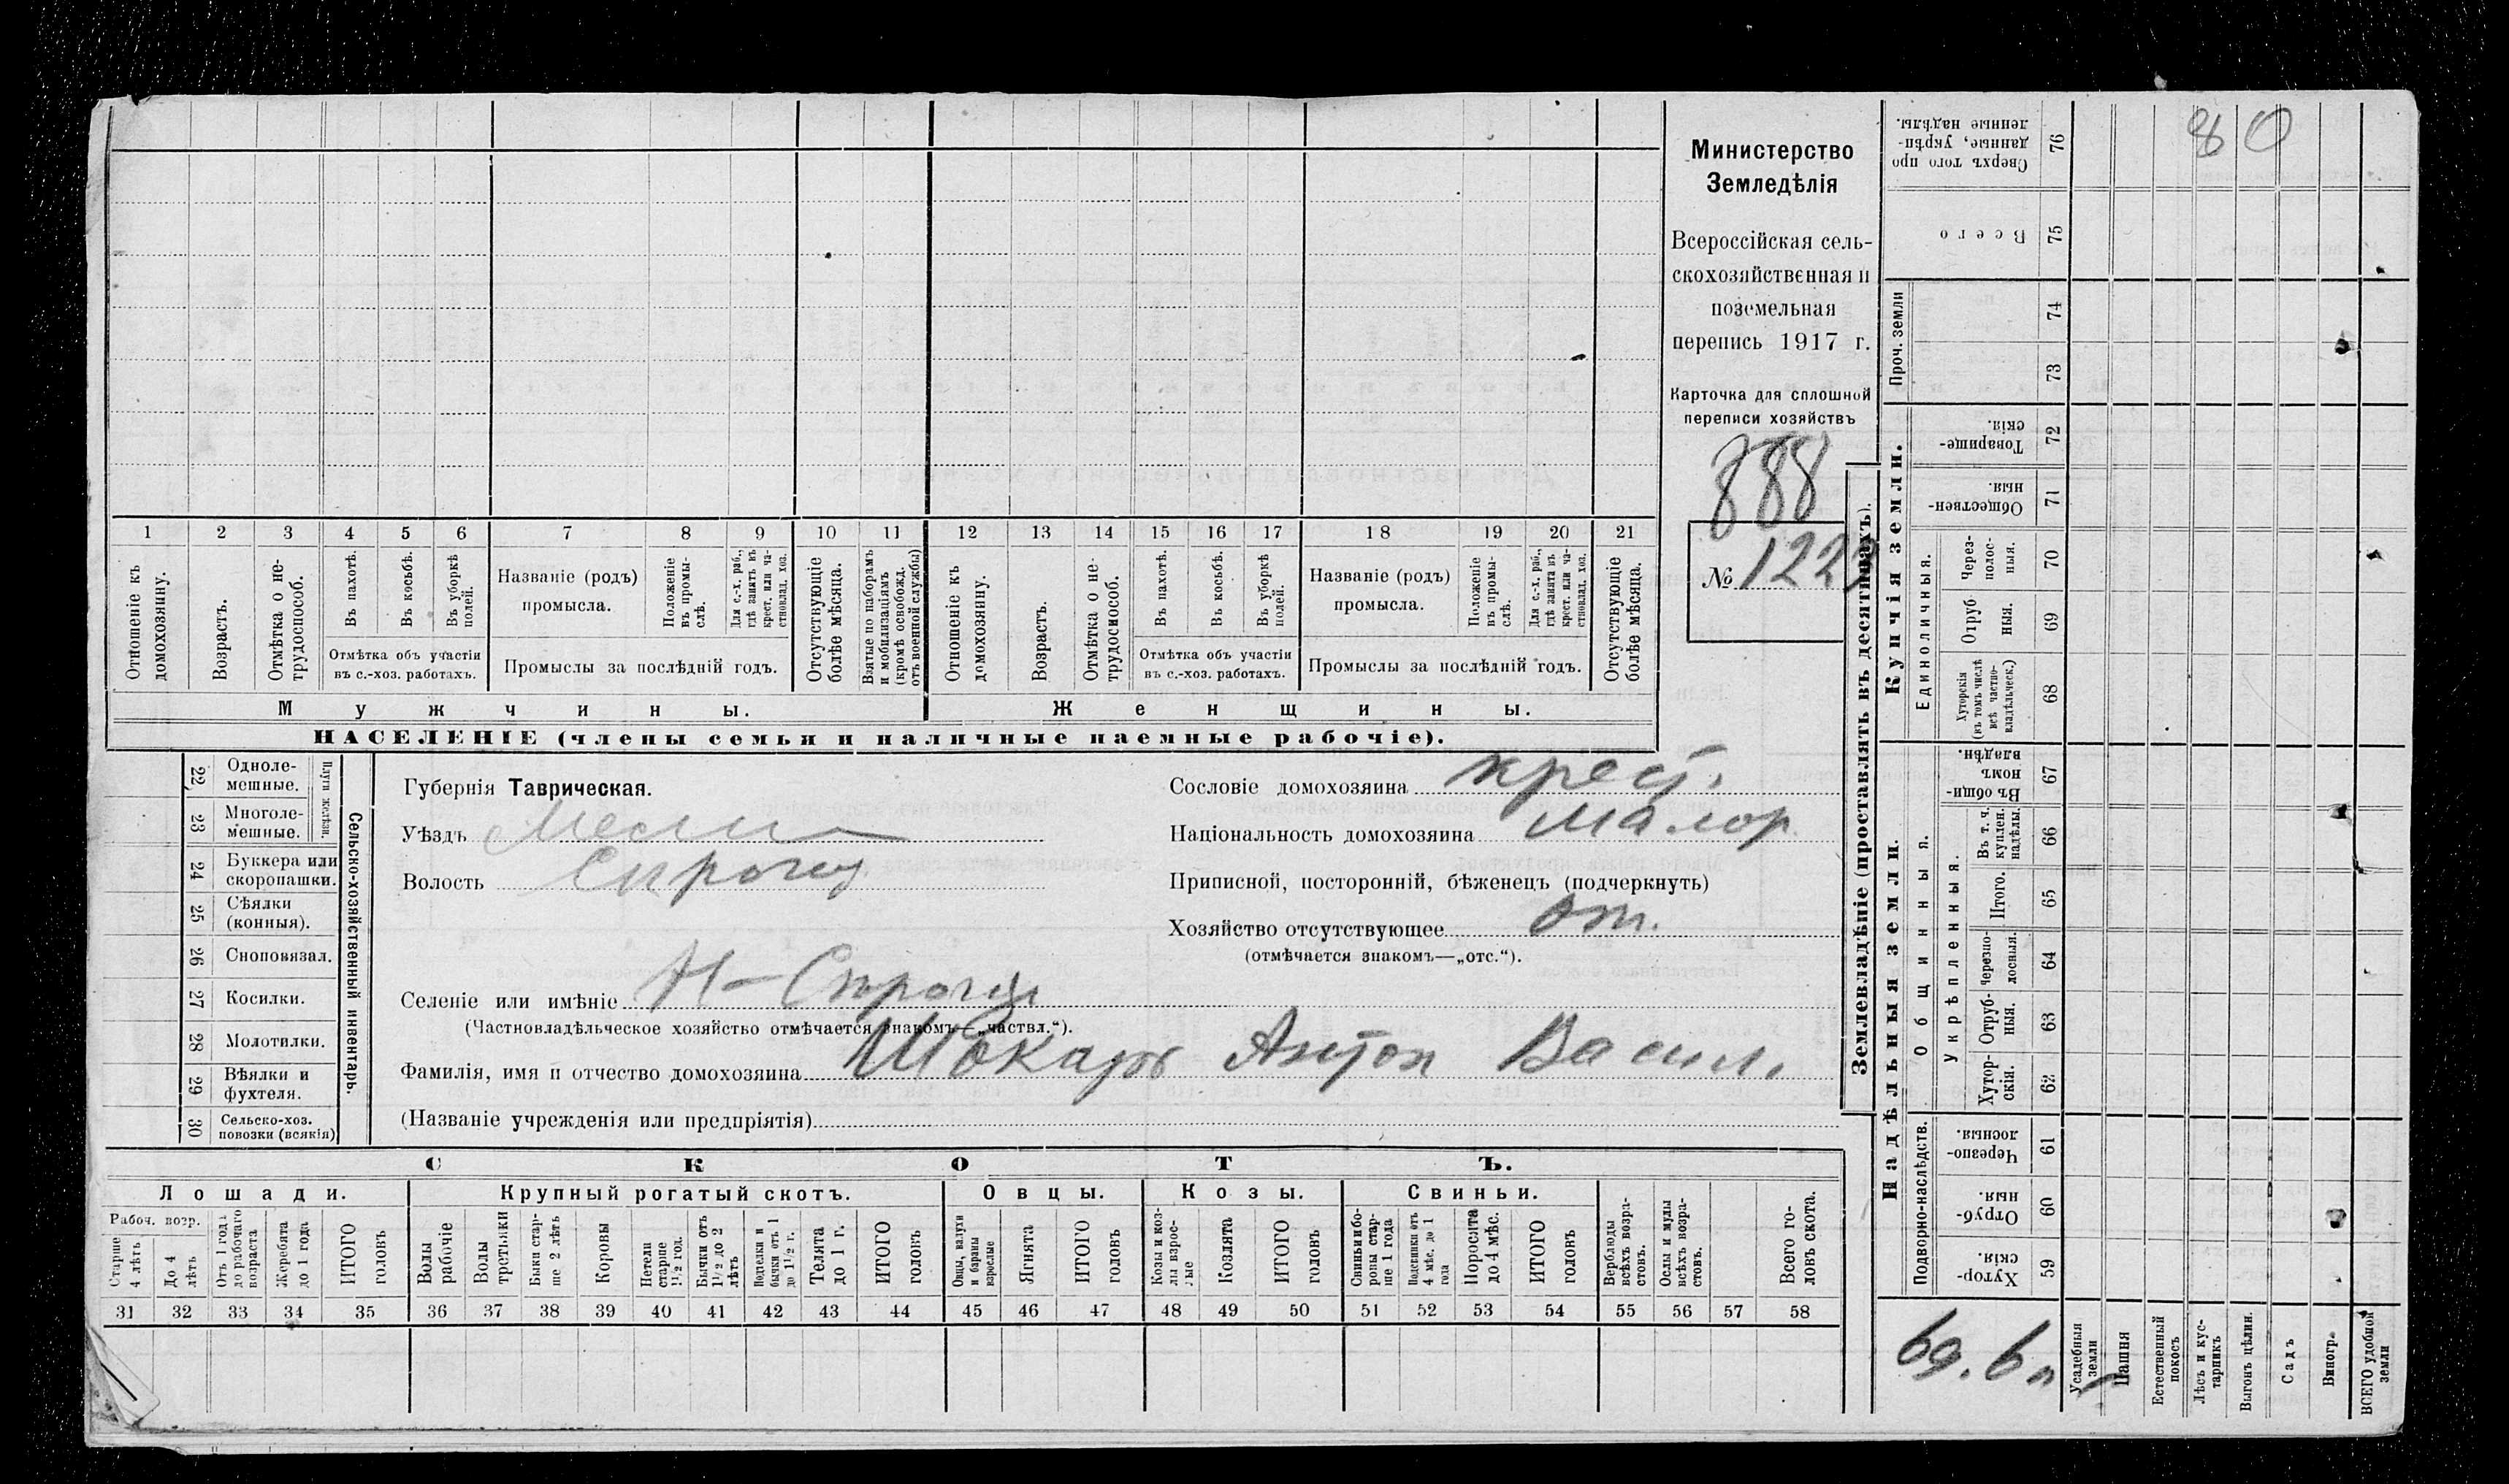 Министерство
Земледѣлія
Всероссійская сель-
скохозяйственная и
поземельная
перепись 1917 г.
Карточка для сплошной
переписи хозяйствъ
888
№ 1222
80
1 2 3 4 5 6 7 8 9 10 11 12 13 14 15 16 17 18 19 20 21
Отношеніе къ домохозяину.
Возрастъ.
Отмѣтка о не-трудоспособ.
Въ пахотѣ.
Въ косьбѣ.
Въ уборкѣ полей.
Отмѣтка объ участіи
въ с.-хоз. работахъ.
Названіе (родъ)
промысла.
Положеніе въ промы-слѣ.
Для с.-х. раб., гдѣ занятъ въ крест. или ча-стновлад. хоз.
Промыслы за послѣдній годъ.
Отсутствующіе болѣе мѣсяца.
Взятые по наборамъ и мобилизаціямъ (кромѣ освобожд. отъ военной службы)
Отношеніе къ домохозяину.
Возрастъ.
Отмѣтка о не-трудоспособ.
Въ пахотѣ.
Въ косьбѣ.
Въ уборкѣ полей.
Отмѣтка объ участіи
въ с.-хоз. работахъ.
Названіе (родъ)
промысла.
Положеніе въ промы-слѣ.
Для с.-х. раб., гдѣ занята въ крест. или ча-стновлад. хоз.
Промыслы за послѣдній годъ.
Отсутствующіе болѣе мѣсяца.
Мужчины.
Женщины.
НАСЕЛЕНІЕ (члены семьи и наличные наемные рабочіе).
22 Одноле-мешные.
23 Многоле-мешные.
Плуги желѣзн.
24 Буккера или скоропашки.
25 Сѣялки (конныя).
26 Сноповязал.
27 Косилки.
28 Молотилки.
29 Вѣялки и фухтеля.
30 Сельско-хоз. повозки (всякія)
Сельско-хозяйственный инвентарь.
Губернія Таврическая.
Уѣздъ Мели
Волость
Сословіе домохозяина крест.
Національность домохозяина малор.
Приписной, посторонній, бѣженецъ (подчеркнуть)
Хозяйство отсутствующее от.
(отмѣчается знакомъ—„отс.“).
Селеніе или имѣніе Н-
(Частновладѣльческое хозяйство отмѣчается знакомъ—„частвл.“).
Фамилія, имя и отчество домохозяина Шокарь Антон Васил.
(Названіе учрежденія или предпріятія)
СКОТЪ.
Лошади.
Крупный рогатый скотъ.
Овцы.
Козы.
Свиньи.
Рабоч. возр.
Старше 4 лѣтъ
До 4 лѣтъ
Отъ 1 года до рабочаго возраста
Жеребята до 1 года
ИТОГО головъ
Волы рабочіе
Волы третьяки
Быки стар-ше 2 лѣтъ
Коровы
Нетели старше 1½ год.
Бычки отъ 1½ до 2 лѣтъ
Подтелки и бычки отъ 1 до 1½ г.
Телята до 1 г.
ИТОГО головъ
Овцы, валухи и бараны взрослые
Ягнята
ИТОГО головъ
Козы и коз-лы взрос-лые
Козлята
ИТОГО головъ
Свиньи и бо-ровы стар-ше 1 года
Подсвинки отъ 4 мѣс. до 1 года
Поросята до 4 мѣс.
ИТОГО головъ
Верблюды всѣхъ возра-стовъ.
Ослы и мулы всѣхъ возра-стовъ.
Всего го-ловъ скота.
31 32 33 34 35 36 37 38 39 40 41 42 43 44 45 46 47 48 49 50 51 52 53 54 55 56 57 58
Землевладѣніе (проставлять въ десятинахъ).
Купчія земли.
Надѣльныя земли.
Сверхъ того про данные, укрѣп-ленные надѣлы. 76
Всего 75
Проч. земли
74
73
Товарище-скія. 72
Обществен-ныя. 71
Единоличныя.
Через-полос-ныя. 70
Отруб ныя. 69
Хуторскія (въ томъ числѣ всѣ частно-владѣльческ.) 68
Общинныя.
Въ общи-номъ владѣн. 67
Укрѣпленныя.
Въ т. ч. куплен. надѣлы. 66
Итого. 65
Черезпо-лосныя. 64
Отруб-ныя. 63
Хутор-скія. 62
Подворно-наслѣдств.
Черезпо-лосныя. 61
Отруб-ныя. 60
Хутор-скія. 59
Усадебныя земли
Пашня
Естественный покосъ
Лѣсъ и кус-тарникъ
Выгонъ цѣлин.
Садъ
Виногр.
ВСЕГО удобной земли